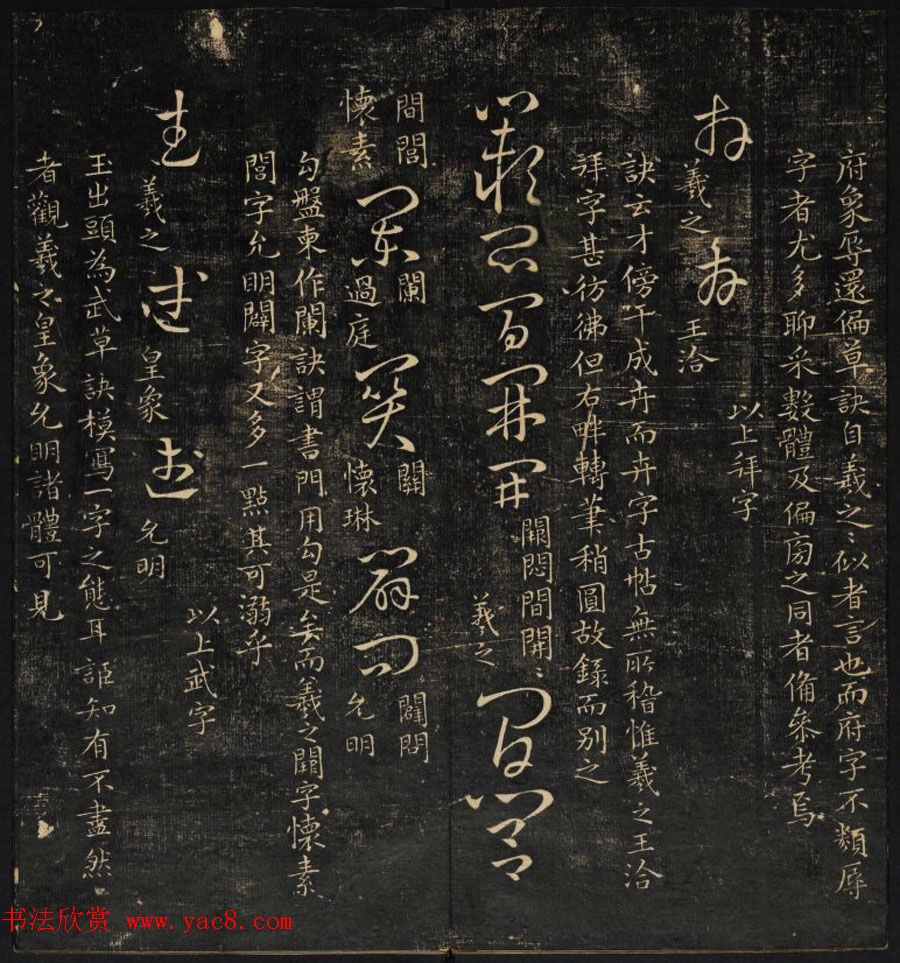 府象辱還偏草訣自羲之〻似者言也而府字不類辱
字者尤多聊采數體及偏旁之同者備參考焉
以上拜字
拜 羲之 拜 王洽
訣云才傍干成卉而卉字古帖無所稽惟羲之王洽
拜字甚彷彿但右畔轉筆稍圓故錄而別之
闕悶間開〻 羲之
間閭 懷素 闌 過庭 關 懷琳 闢問 允明
勾盤柬作闌訣謂書門用勾是矣而羲之關字懷素
閭字允明闢字又多一點其可溺乎
武 羲之 武 皇象 武 允明
以上武字
玉出頭為武草訣模寫一字之態耳詎知有不盡然
者觀羲之皇象允明諸體可見
书法欣赏 www.yac8.com